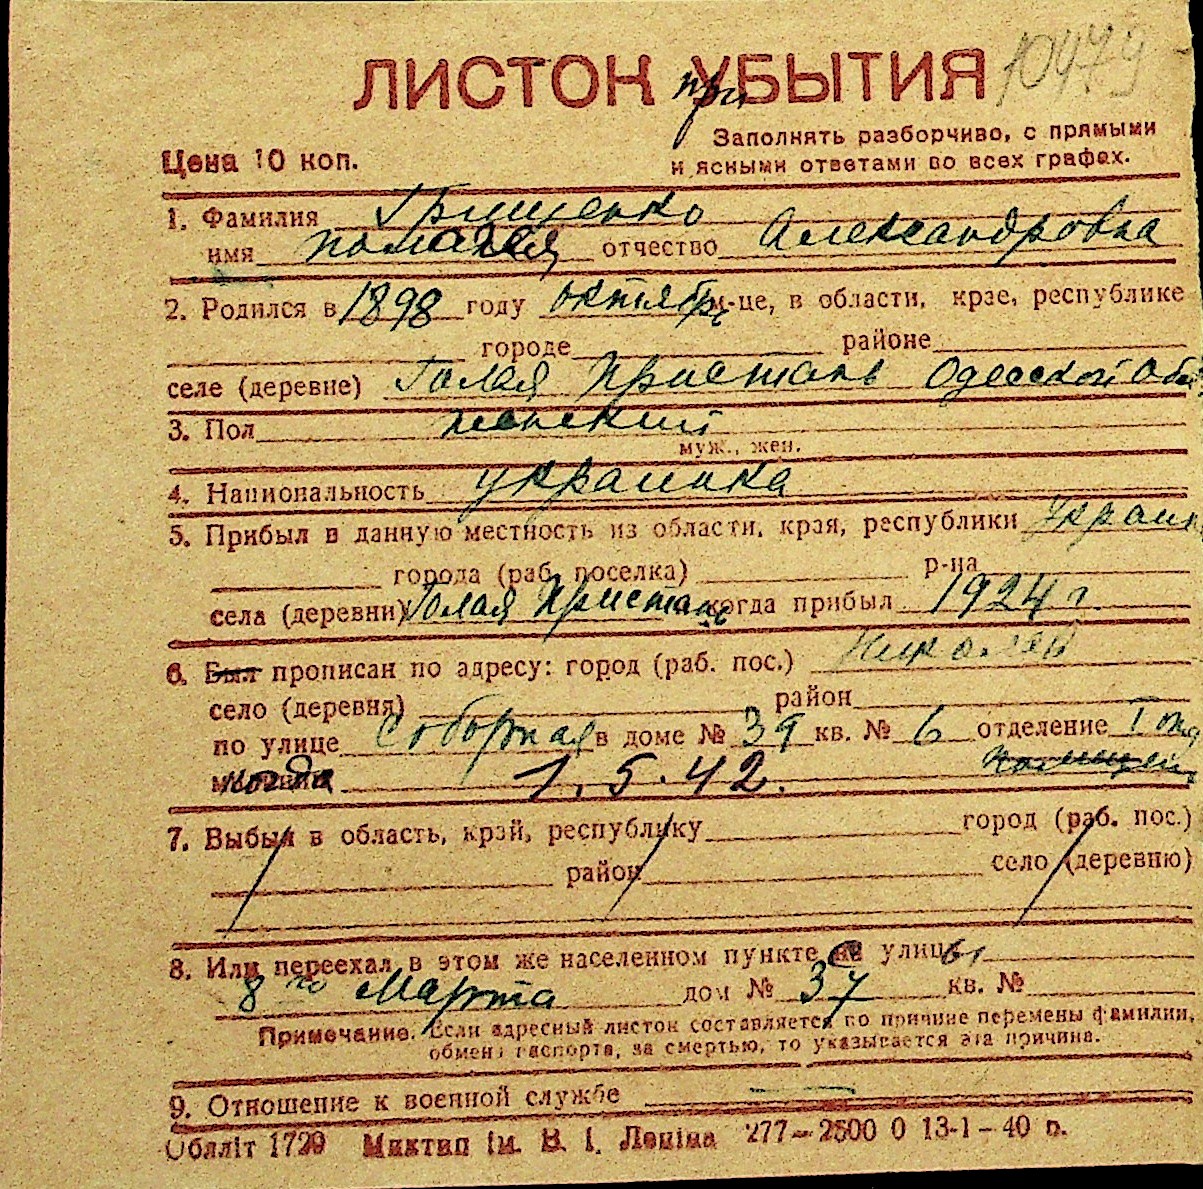 10479
ЛИСТОК УБЫТИЯ
при
Заполнять разборчиво, с прямыми
и ясными ответами во всех графах.
Цена 10 коп.
1. Фамилия Грищенко
имя Пелагея отчество Александровна
2. Родился в 1898 году октябрь м-це, в области, крае, республике
городе районе
селе (деревне) Голая Пристань Одесской обл
3. Пол женский
муж., жен.
4. Национальность украинка
5. Прибыл в данную местность из области, края, республики Украин
города (раб. поселка) р-на
села (деревни) Голая Пристань когда прибыл 1924 г.
6. Был прописан по адресу: город (раб. пос.) Николаев
село (деревня) район
по улице Соборная в доме № 39 кв. № 6 отделение I
когда 1.5.42. полиции
7. Выбыл в область, край, республику город (раб. пос.)
район село (деревню)
8. Или переехал в этом же населенном пункте с улицы
8го Марта дом № 37 кв. №
Примечание. Если адресный листок составляется по причине перемены фамилии,
обмена паспорта, за смертью, то указывается эта причина.
9. Отношение к военной службе —
Облліт 1729 Миктип ім. В. І. Леніна 277—2500 0 13-1-40 р.